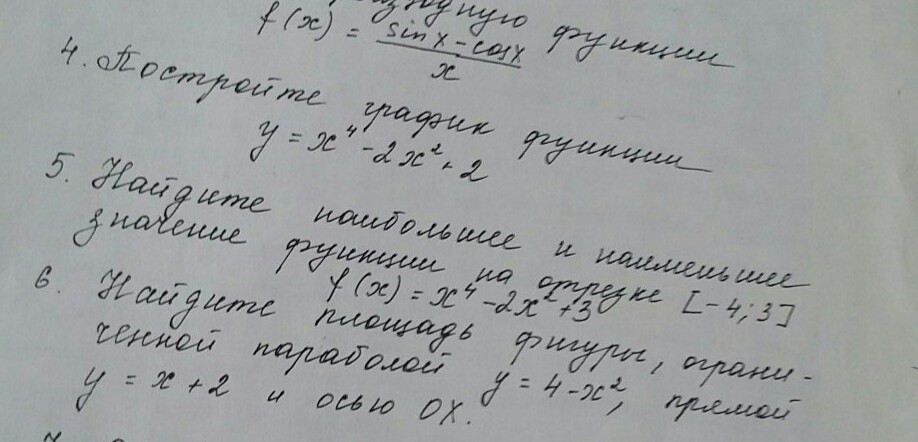 функции
f(x) = sinx - cosx / x
4. Постройте график функции
y = x⁴ - 2x² + 2
5. Найдите наибольшее и наименьшее
значение функции на отрезке [-4; 3]
f(x) = x⁴ - 2x² + 3
6. Найдите площадь фигуры, ограни-
ченной параболой y = 4 - x², прямой
y = x + 2 и осью OX.